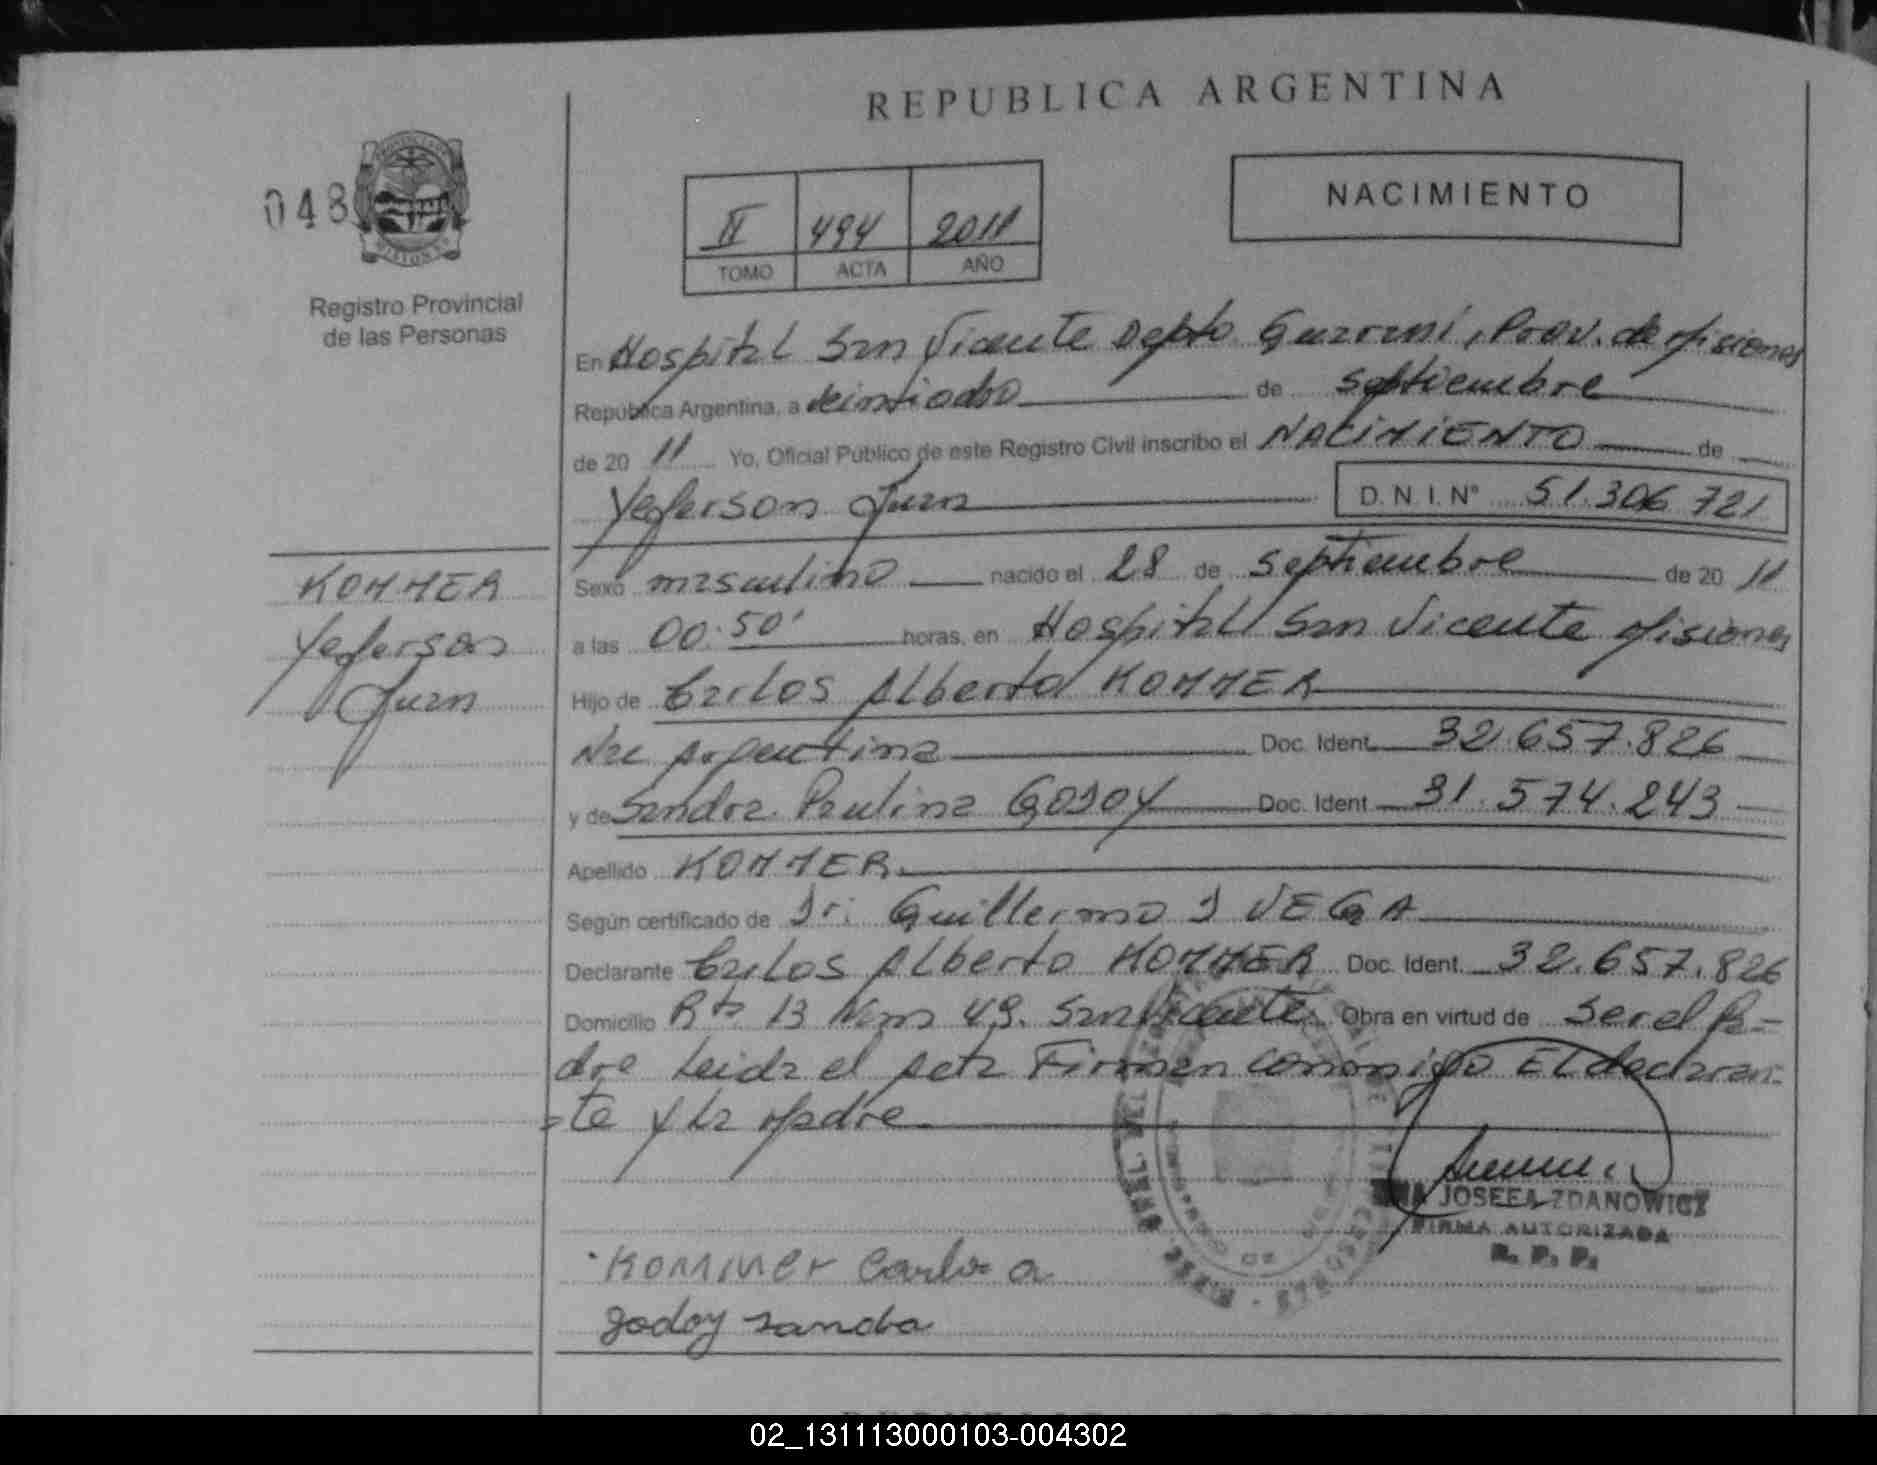 REPUBLICA ARGENTINA
048
NACIMIENTO
II 494 2011
TOMO ACTA AÑO
Registro Provincial
de las Personas
En Hospital San Vicente Depto Guarani, Prov. de Misiones
República Argentina, a veintiocho de Septiembre
de 20 11 Yo, Oficial Público de este Registro Civil inscribo el NACIMIENTO de
Yeferson Juan D.N.I. Nº 51.306.721
KOMMER
Yeferson
Juan
Sexo masculino nacido el 28 de septiembre de 20 11
a las 00:50' horas, en Hospital San Vicente Misiones
Hijo de Carlos Alberto KOMMER
Nac Argentina Doc. Ident. 32.657.826
y de Sandra Paulina GODOY Doc. Ident. 31.574.243
Apellido KOMMER
Según certificado de Dr: Guillermo D VEGA
Declarante Carlos Alberto KOMMER Doc. Ident. 32.657.826
Domicilio Rta 13 Km 49. San Vicente Obra en virtud de Ser el Pa=
dre Leida el Acta Firman conmigo El declaran=
=te y la Madre.
JOSEFA ZDANOWICZ
FIRMA AUTORIZADA
R. P. P.
Kommer Carlos a
godoy sandra
02_131113000103-004302